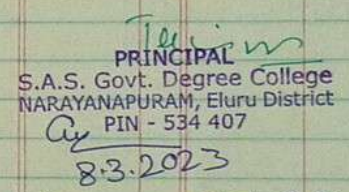 PRINCIPAL
S.A.S. Govt. Degree College
NARAYANAPURAM, Eluru District
PIN - 534 407
8.3.2023